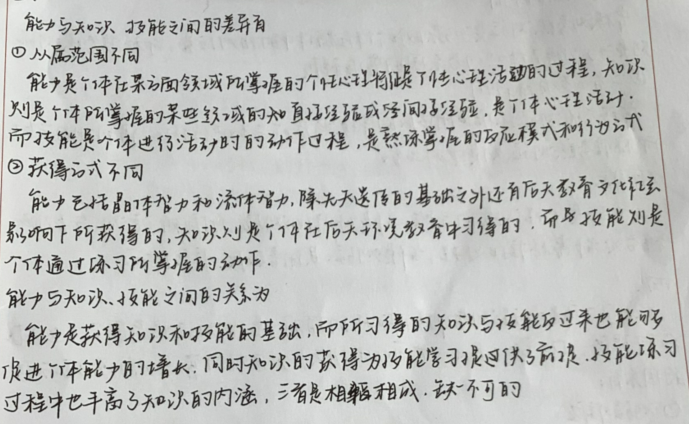 能力与知识、技能之间的差异有
① 从属范围不同
能力是个体在某方面领域所掌握的个性心理特征是个体心理活动的过程，知识
则是个体所掌握的某些领域的知直接经验或经间接经验，是个体心理活动．
而技能是个体进行活动时的动作过程，是熟练掌握的反应模式和行为方式
② 获得方式不同
能力包括晶体智力和流体智力，除先天遗传的基础之外还有后天教育文化社会
影响下所获得的，知识则是个体在后天环境教育中习得的．而技能则是
个体通过练习所掌握的动作．
能力与知识、技能之间的关系为
能力是获得知识和技能的基础，而所习得的知识与技能反过来也能够
促进个体能力的增长、同时知识的获得为技能学习提供了前提．技能练习
过程中也丰富了知识的内涵，三者是相辅相成．缺一不可的